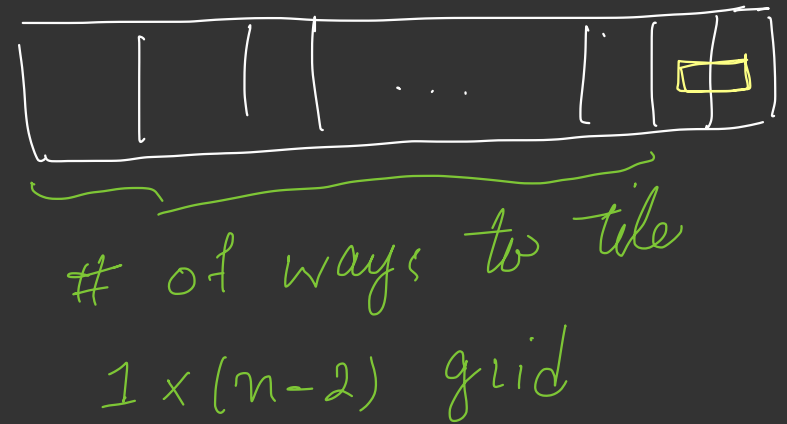 ...
# of ways to tile
1 × (n-2) grid